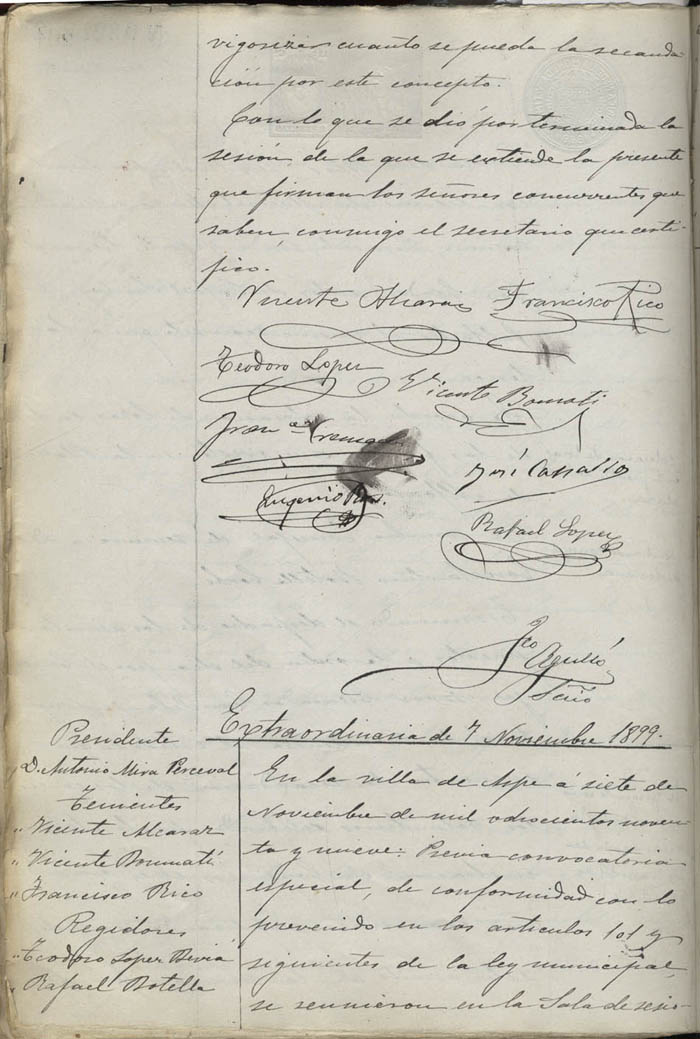 vigorizar cuanto se pueda la recauda
ción por este concepto.
Con lo que se dió por terminada la
sesión de la que se extiende la presente
que firman los señores concurrentes que
saben, conmigo el secretario que certi-
fico.
Vicente Alcaraz Francisco Rico
Teodoro Lopez
Vicente Bonmati
Fran.co
José
Eugenio
Rafael Lopez
Fco Agulló
Srio
Extraordinaria de 7 Noviembre 1899.
Presidente
D. Antonio Mira Perceval
Tenientes
" Vicente Alcaraz
" Vicente Bonmatí
" Francisco Rico
Regidores
" Teodoro Lopez Diviá
" Rafael Botella
En la villa de Aspe á siete de
Noviembre de mil ochocientos noven-
ta y nueve: Previa convocatoria
especial, de conformidad con lo
prevenido en los articulos 101 y
siguientes de la ley municipal,
se reunieron en la Sala de sesio-